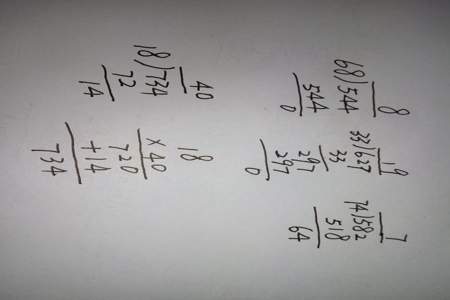 8
68)544
544
0
19
33)627
33
297
297
0
7
74)582
518
64
40
18)734
72
14
18
x40
720
+14
734